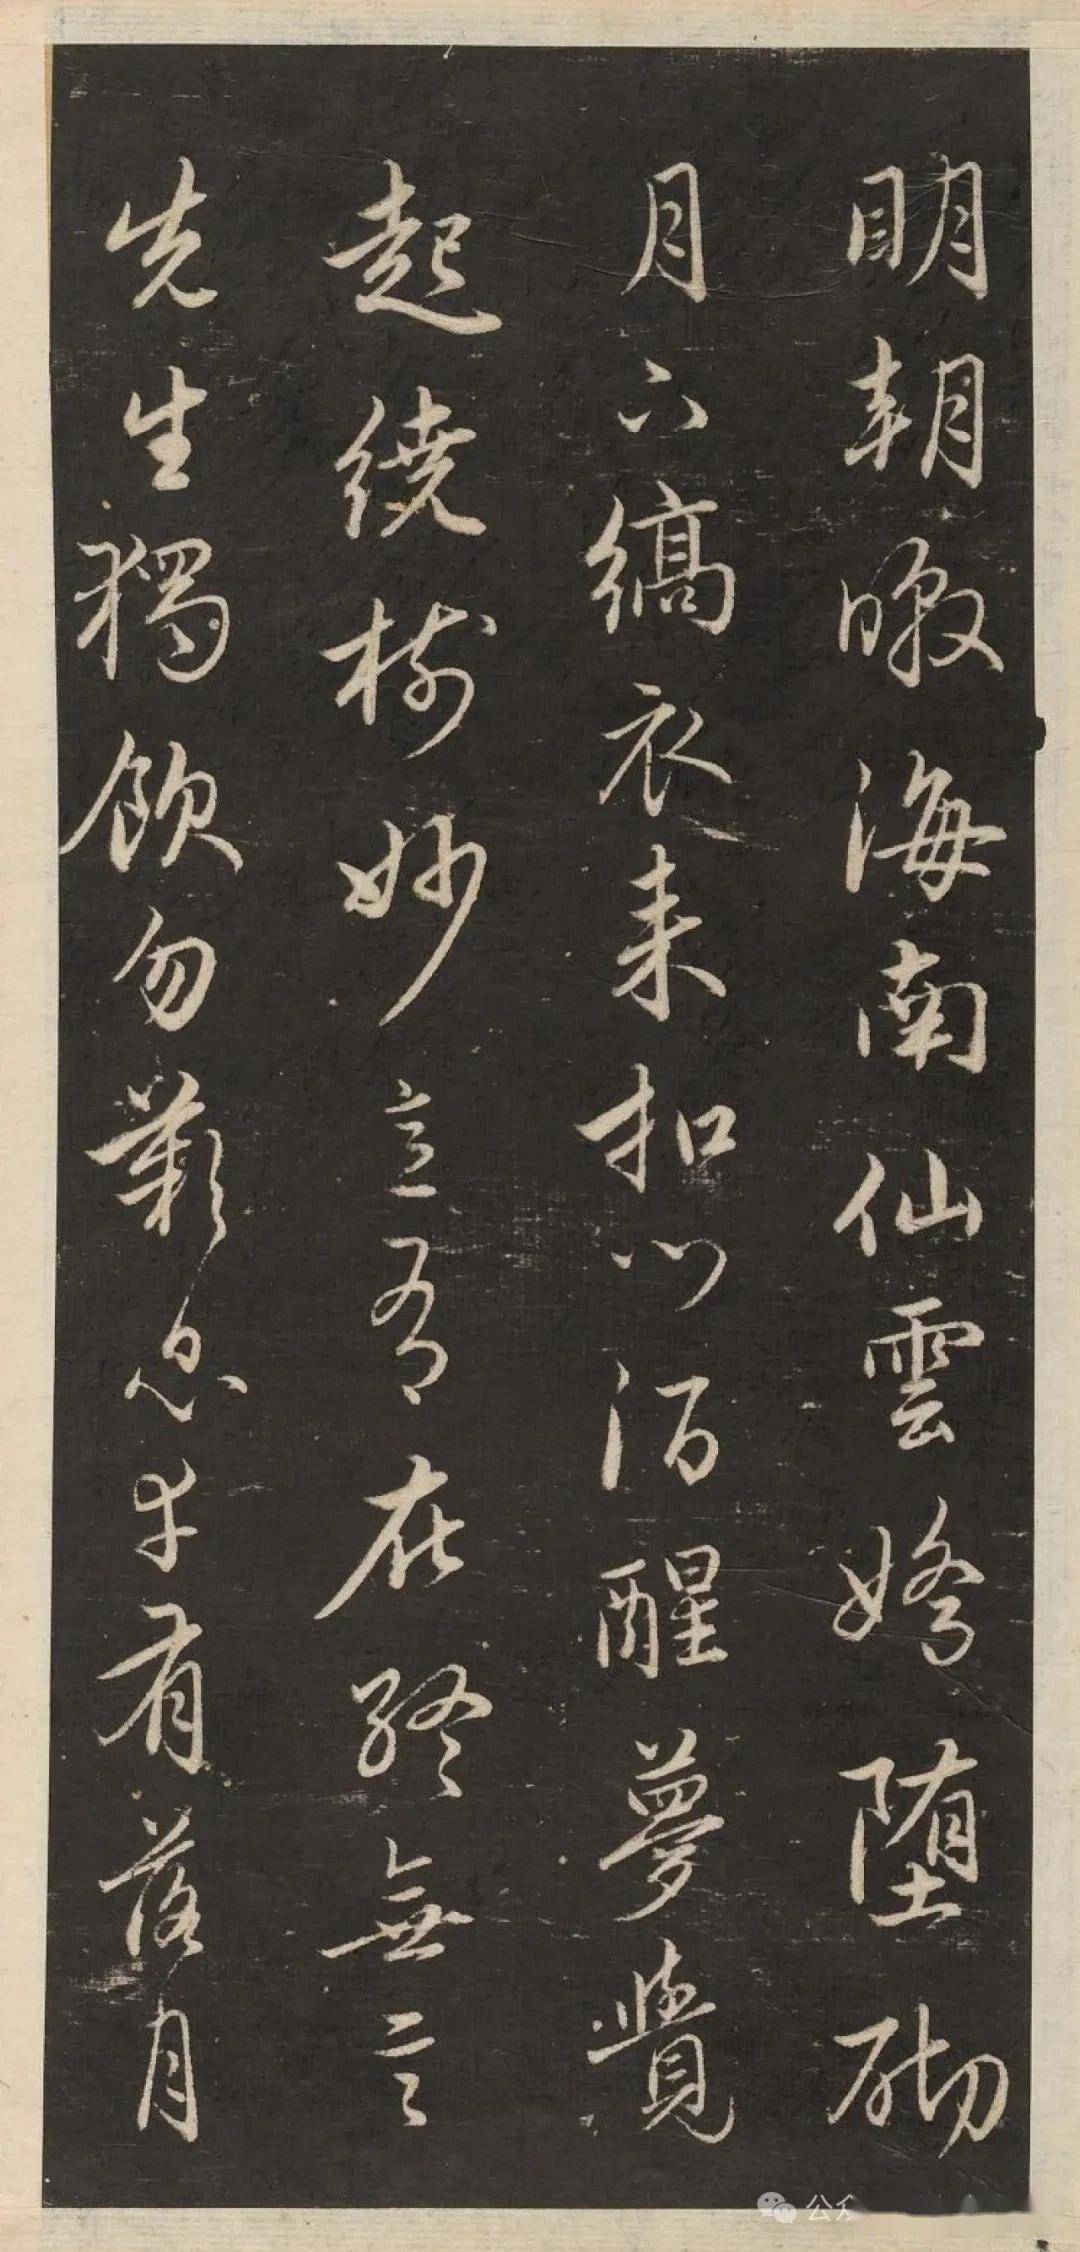 明朝暾海南仙雲嬌堕砌
月下縞衣来扣門酒醒夢覺
起繞樹妙意有在終無言
先生獨飲勿歎息幸有落月
公众